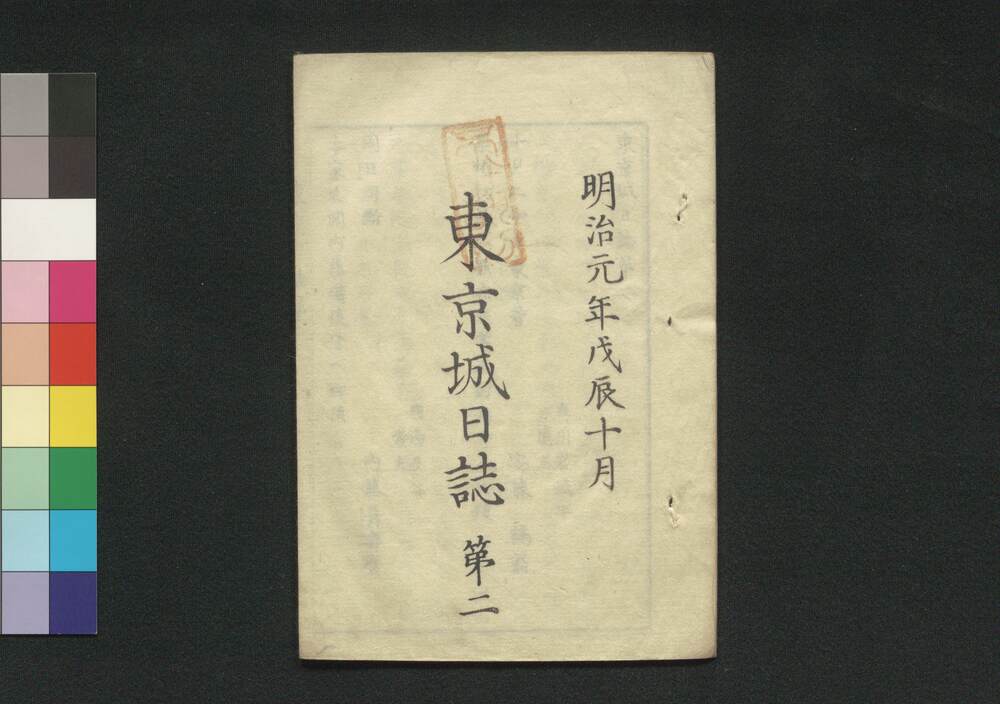 明治元年戊辰十月
東京城日誌 第二